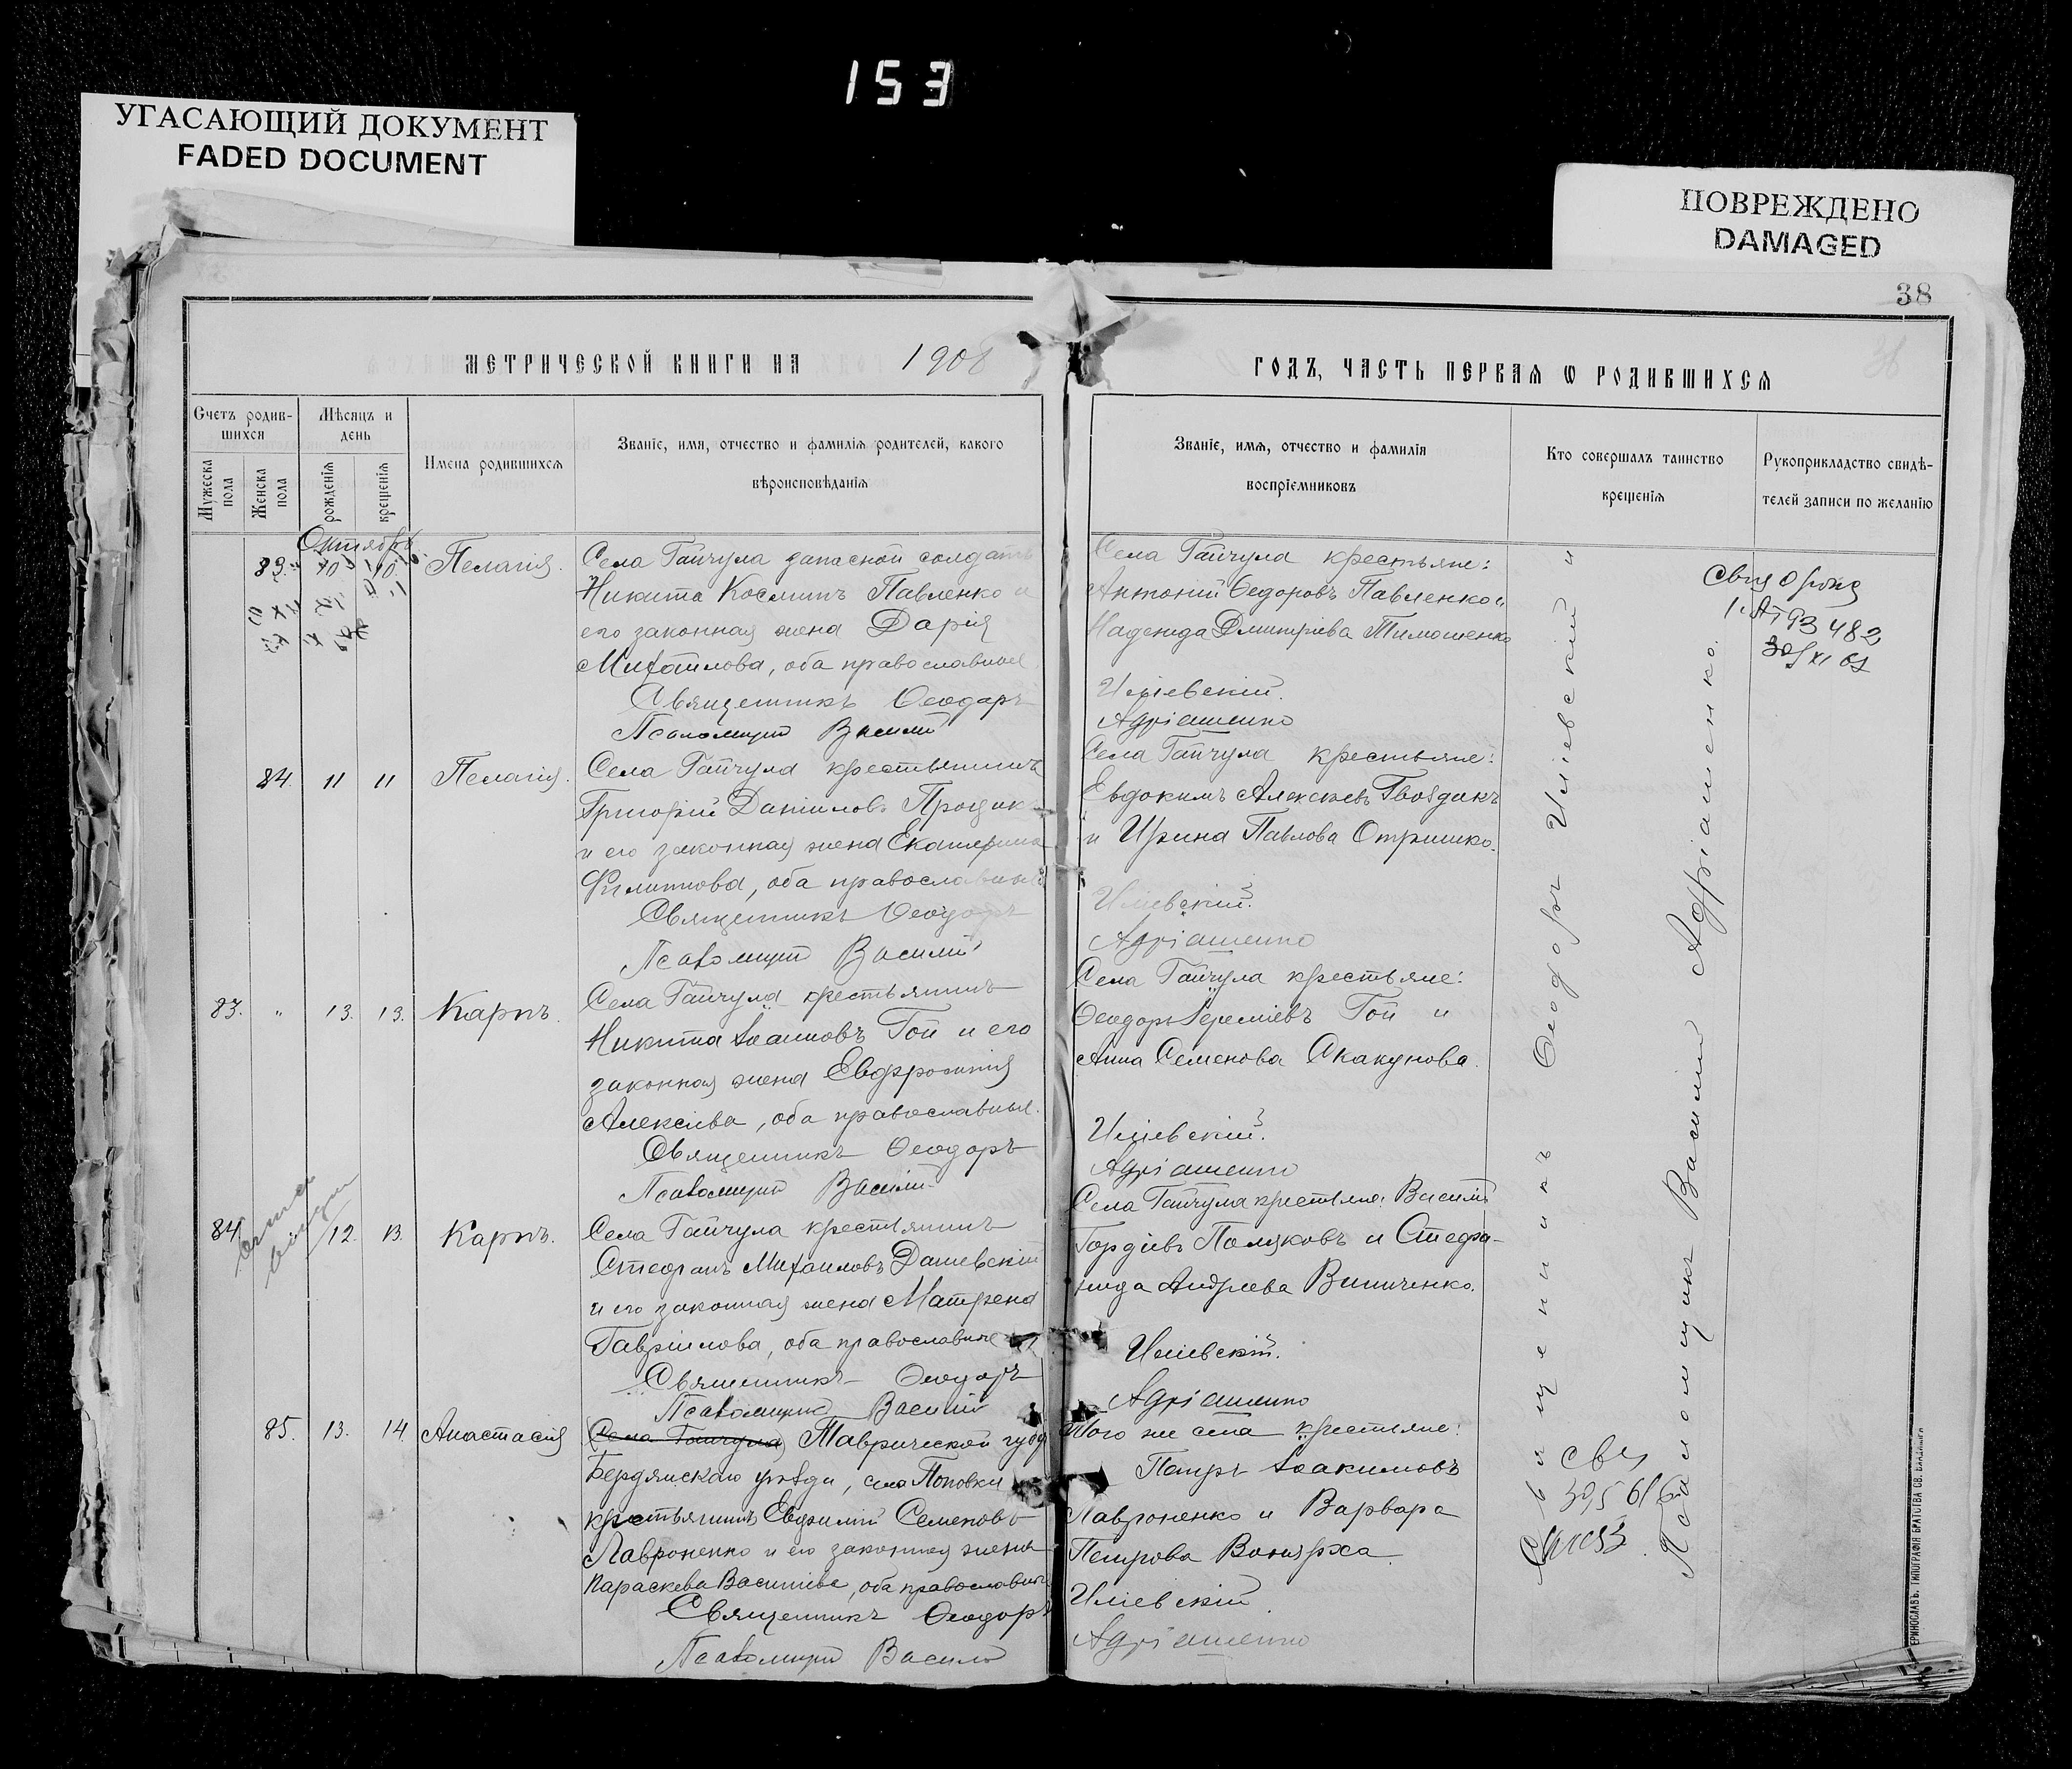 153
УГАСАЮЩИЙ ДОКУМЕНТ
FADED DOCUMENT
ПОВРЕЖДЕНО
DAMAGED
38
МЕТРИЧЕСКОЙ КНИГИ НА 1908
ГОДЪ, ЧАСТЬ ПЕРВАЯ Ѡ РОДИВШИХСЯ
Счетъ родив-
шихся
Мужеска
пола
Женска
пола
Мѣсяцъ и
день
рожденія
крещенія
Имена родившихся
Званіе, имя, отчество и фамилія родителей, какого
вѣроисповѣданія
Званіе, имя, отчество и фамилія
воспріемниковъ
Кто совершалъ таинство
крещенія
Рукоприкладство свидѣ-
телей записи по желанію
Октябрь
83. 10 10. Пелагія.
Села Гайчула запасной солдатъ
Никита Косминъ Павленко и
его законная жена Дарія
Михаилова, оба православные
Священникъ Ѳеодоръ
Псаломщикъ Василій
Села Гайчула крестьяне:
Антоній Ѳедоровъ Павленко и
Надежда Дмитріева Тимошенко
Иліевскій.
Адріашенко
1-АП 93482
84. 11 11 Пелагія.
Села Гайчула крестьянинъ
Григорій Даніиловъ
и его законная жена Екатерина
Филиппова, оба православные
Священникъ Ѳеодоръ
Псаломщикъ Василій
Села Гайчула крестьяне:
Евдокимъ Алексѣевъ Гвоздикъ
и Ирина Павлова Отришко.
Иліевскій.
Адріашенко
83. " 13. 13. Карпъ.
Села Гайчула крестьянинъ
Никита Іоанновъ Гой и его
законная жена Евфросинія
Алексіева, оба православные.
Священникъ Ѳеодоръ
Псаломщикъ Василій
Села Гайчула крестьяне:
Ѳеодоръ Іереміевъ Гой и
Анна Семенова Скакунова.
Иліевскій.
Адріашенко
84 12. 13. Карпъ.
Села Гайчула крестьянинъ
Стефанъ Михаиловъ Дашевскій
и его законная жена Матрена
Гавріилова, оба православные
Священникъ Ѳеодоръ
Псаломщикъ Василій
Села Гайчула крестьяне: Василій
Гордіевъ Поляковъ и Стефа-
нида Андреева Винниченко.
Иліевскій.
Адріашенко
85. 13. 14. Анастасія
(Села Гайчула) Таврической губ.
Бердянскаго уѣзда, села Поповки
крестьянинъ Евфимій Семеновъ
Лавроненко и его законная жена
Параскева Василіева, оба православные
Священникъ Ѳеодоръ
Псаломщикъ Василій
Того же села крестьяне:
Петръ Іоакимовъ
Лавроненко и Варвара
Петрова
Иліевскій.
Адріашенко
Священникъ Ѳеодоръ Иліевскій и
Псаломщикъ Василій Адріашенко.